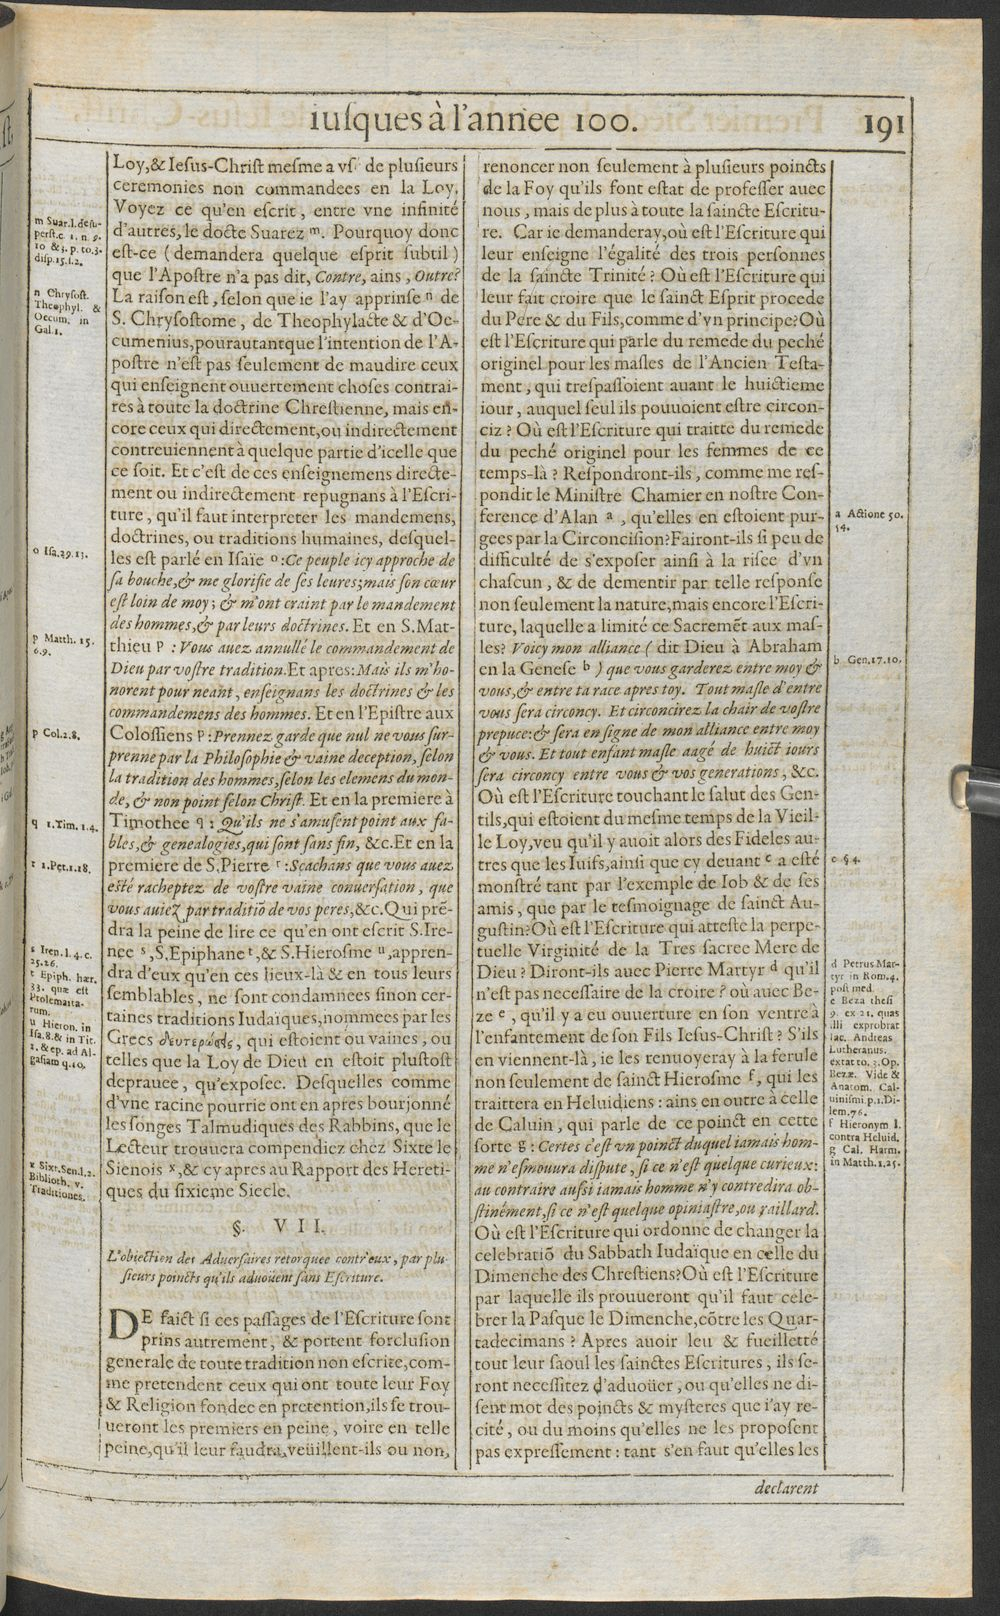 iusques à l'annee 100.
191
Loy,& Iesus-Christ mesme a vsé de plusieurs
ceremonies non commandees en la Loy.
Voyez ce qu'en escrit, entre vne infinité
d'autres, le docte Suarez m. Pourquoy donc
est-ce (demandera quelque esprit subtil)
que l'Apostre n'a pas dit, Contre, ains, Outre?
La raison est, selon que ie l'ay apprinse n de
S. Chrysostome, de Theophylacte & d'Oe-
cumenius,pourautantque l'intention de l'A-
postre n'est pas seulement de maudire ceux
qui enseignent ouuertement choses contrai-
res à toute la doctrine Chrestienne, mais en-
core ceux qui directement,ou indirectement
contreuiennent à quelque partie d'icelle que
ce soit. Et c'est de ces enseignemens directe-
ment ou indirectement repugnans à l'Escri-
ture, qu'il faut interpreter les mandemens,
doctrines, ou traditions humaines, desquel-
les est parlé en Isaïe o :Ce peuple icy approche de
sa bouche,& me glorifie de ses leures;mais son cœur
est loin de moy; & m'ont craint par le mandement
des hommes,& par leurs doctrines. Et en S.Mat-
thieu p : Vous auez annullé le commandement de
Dieu par vostre tradition.Et apres:Mais ils m'ho-
norent pour neant, enseignans les doctrines & les
commandemens des hommes. Et en l'Epistre aux
Colossiens p :Prennez garde que nul ne vous sur-
prenne par la Philosophie & vaine deception, selon
la tradition des hommes,selon les elemens du mon-
de, & non point selon Christ. Et en la premiere à
Timothee q : Qu'ils ne s'amusent point aux fa-
bles,& genealogies,qui sont sans fin, &c.Et en la
premiere de S.Pierre r :Sçachans que vous auez
esté racheptez de vostre vaine conuersation, que
vous auiez par traditiõ de vos peres,&c.Qui prẽ-
dra la peine de lire ce qu'en ont escrit S.Ire-
nee s ,S.Epiphane t ,& S.Hierosme u ,appren-
dra d'eux qu'en ces lieux-là & en tous leurs
semblables, ne sont condamnees sinon cer-
taines traditions Iudaïques,nommees par les
Grecs δευτερώσεις, qui estoient ou vaines, ou
telles que la Loy de Dieu en estoit plustost
deprauee, qu'exposee. Desquelles comme
d'vne racine pourrie ont en apres bourjonné
les songes Talmudiques des Rabbins, que le
Lecteur trouuera compendiez chez Sixte le
Sienois x ,& cy apres au Rapport des Hereti-
ques du sixieme Siecle.
§. VII.
L'obiection des Aduersaires retorquee contr'eux, par plu-
sieurs poincts qu'ils aduoüent sans Escriture.
DE faict si ces passages de l'Escriture sont
prins autrement, & portent forclusion
generale de toute tradition non escrite,com-
me pretendent ceux qui ont toute leur Foy
& Religion fondee en pretention,ils se trou-
ueront les premiers en peine, voire en telle
peine,qu'il leur faudra,veüillent-ils ou non,
m Suar.l.de su-
perst.c. 1. n. 9.
10 & 3. p. to.3.
disp.15.s.2.
n Chrysost.
Theophyl. &
Oecum. in
Gal.1.
o Isa.29.13.
p Matth. 15.
6.9.
p Col.2.8.
q 1.Tim. 1.4.
r 1.Pet.1.18.
s Iren.l.4.c.
25.26.
t Epiph. hær.
33. quæ est
Ptolemaita-
rum.
u Hieron. in
Isa.8.& in Tit.
1. & ep. ad Al-
gasiam q.10.
x Sixt.Sen.l.2.
Biblioth. v.
Traditiones.
renoncer non seulement à plusieurs poincts
de la Foy qu'ils font estat de professer auec
nous, mais de plus à toute la saincte Escritu-
re. Car ie demanderay,où est l'Escriture qui
leur enseigne l'égalité des trois personnes
de la saincte Trinité? Où est l'Escriture qui
leur fait croire que le sainct Esprit procede
du Pere & du Fils,comme d'vn principe?Où
est l'Escriture qui parle du remede du peché
originel pour les masles de l'Ancien Testa-
ment, qui trespassoient auant le huictieme
iour, auquel seul ils pouuoient estre circon-
ciz? Où est l'Escriture qui traitte du remede
du peché originel pour les femmes de ce
temps-là? Respondront-ils, comme me res-
pondit le Ministre Chamier en nostre Con-
ference d'Alan a , qu'elles en estoient pur-
gees par la Circoncision?Fairont-ils si peu de
difficulté de s'exposer ainsi à la risee d'vn
chascun, & de dementir par telle response
non seulement la nature,mais encore l'Escri-
ture, laquelle a limité ce Sacremẽt aux mas-
les? Voicy mon alliance (dit Dieu à Abraham
en la Genese b ) que vous garderez entre moy &
vous,& entre ta race apres toy. Tout masle d'entre
vous sera circoncy. Et circoncirez la chair de vostre
prepuce:& sera en signe de mon alliance entre moy
& vous. Et tout enfant masle aagé de huict iours
sera circoncy entre vous & vos generations, &c.
Où est l'Escriture touchant le salut des Gen-
tils,qui estoient du mesme temps de la Vieil-
le Loy,veu qu'il y auoit alors des Fideles au-
tres que les Iuifs,ainsi que cy deuant c a esté
monstré tant par l'exemple de Iob & de ses
amis, que par le tesmoignage de sainct Au-
gustin?Où est l'Escriture qui atteste la perpe-
tuelle Virginité de la Tres sacree Mere de
Dieu? Diront-ils auec Pierre Martyr d qu'il
n'est pas necessaire de la croire? où auec Be-
ze e , qu'il y a eu ouuerture en son ventre à
l'enfantement de son Fils Iesus-Christ? S'ils
en viennent-là, ie les renuoyeray à la ferule
non seulement de sainct Hierosme f, qui les
traittera en Heluidiens: ains en outre à celle
de Caluin, qui parle de ce poinct en cette
sorte g : Certes c'est vn poinct duquel iamais hom-
me n'esmouura dispute, si ce n'est quelque curieux:
au contraire aussi iamais homme n'y contredira ob-
stinément,si ce n'est quelque opiniastre,ou raillard.
Où est l'Escriture qui ordonne de changer la
celebratiõ du Sabbath Iudaïque en celle du
Dimenche des Chrestiens?Où est l'Escriture
par laquelle ils prouueront qu'il faut cele-
brer la Pasque le Dimenche,cõtre les Quar-
tadecimans? Apres auoir leu & fueilletté
tout leur saoul les sainctes Escritures, ils se-
ront necessitez d'aduoüer, ou qu'elles ne di-
sent mot des poincts & mysteres que i'ay re-
cité, ou du moins qu'elles ne les proposent
pas expressement: tant s'en faut qu'elles les
a Actione 50.
54.
b Gen.17.10.
c §4.
d Petrus Mar-
tyr in Rom.4.
post med.
e Beza thesi
9. ex 21. quas
illi exprobrat
Iac. Andreas
Lutheranus.
extat to. 3.Op.
Bezæ. Vide &
Anatom. Cal-
uinismi.p.1.Di-
lem.76.
f Hieronym l.
contra Heluid.
g Cal. Harm.
in Matth.1.25.
declarent